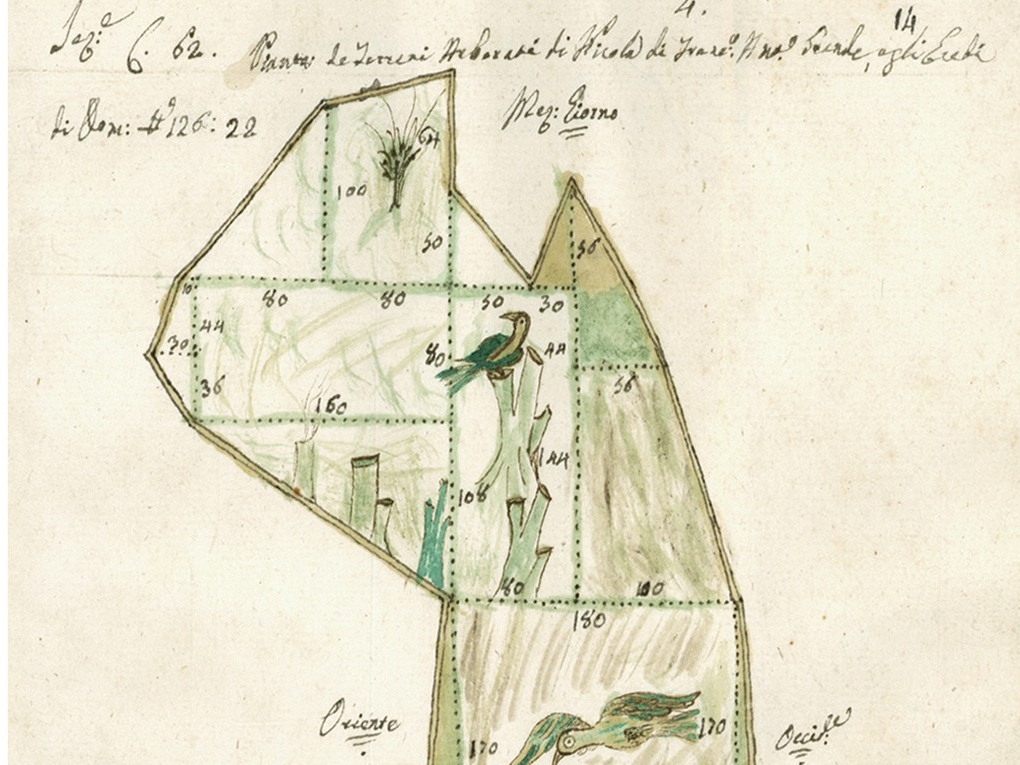 4. 14
6. 62. Pianta de Terreni Arborati di Nicola di Franc.º
di Dom: 126: 22
Mez: Giorno
64
100
50
56
10
80 80 50 30
44
30
80
44
36
56
160
144
108
80 100
180
Oriente
170
170